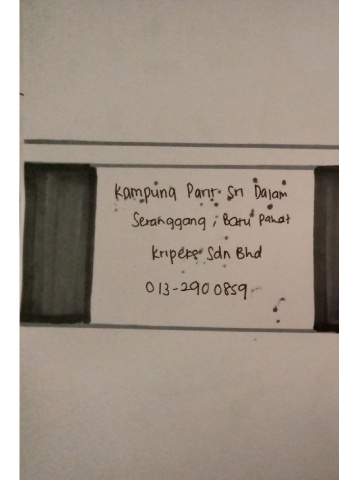 Kampung Parit Sri Dalam
Seranggang, Batu Pahat
Kripeks Sdn Bhd
013-2900859